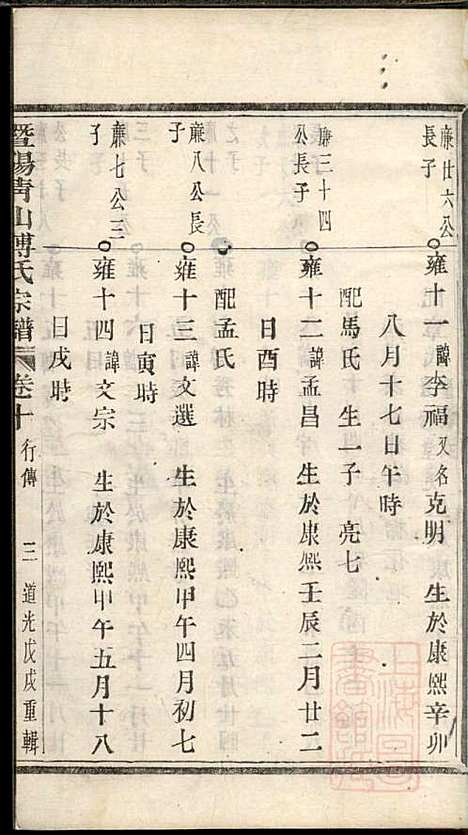 廉廿六公
長子
雍十一諱李福又名克明 生於康熙辛卯
八月十七日午時
配馬氏 生一子 亮七
廉三十四
公長子
雍十二諱孟昌 生於康熙壬辰二月廿二
日酉時
配孟氏
廉八公長
子
雍十三諱文選 生於康熙甲午四月初七
日寅時
廉七公三
子
雍十四諱文宗 生於康熙甲午五月十八
日戌時
暨陽青山傅氏宗譜 卷十 行傳 三 道光戊戌重輯